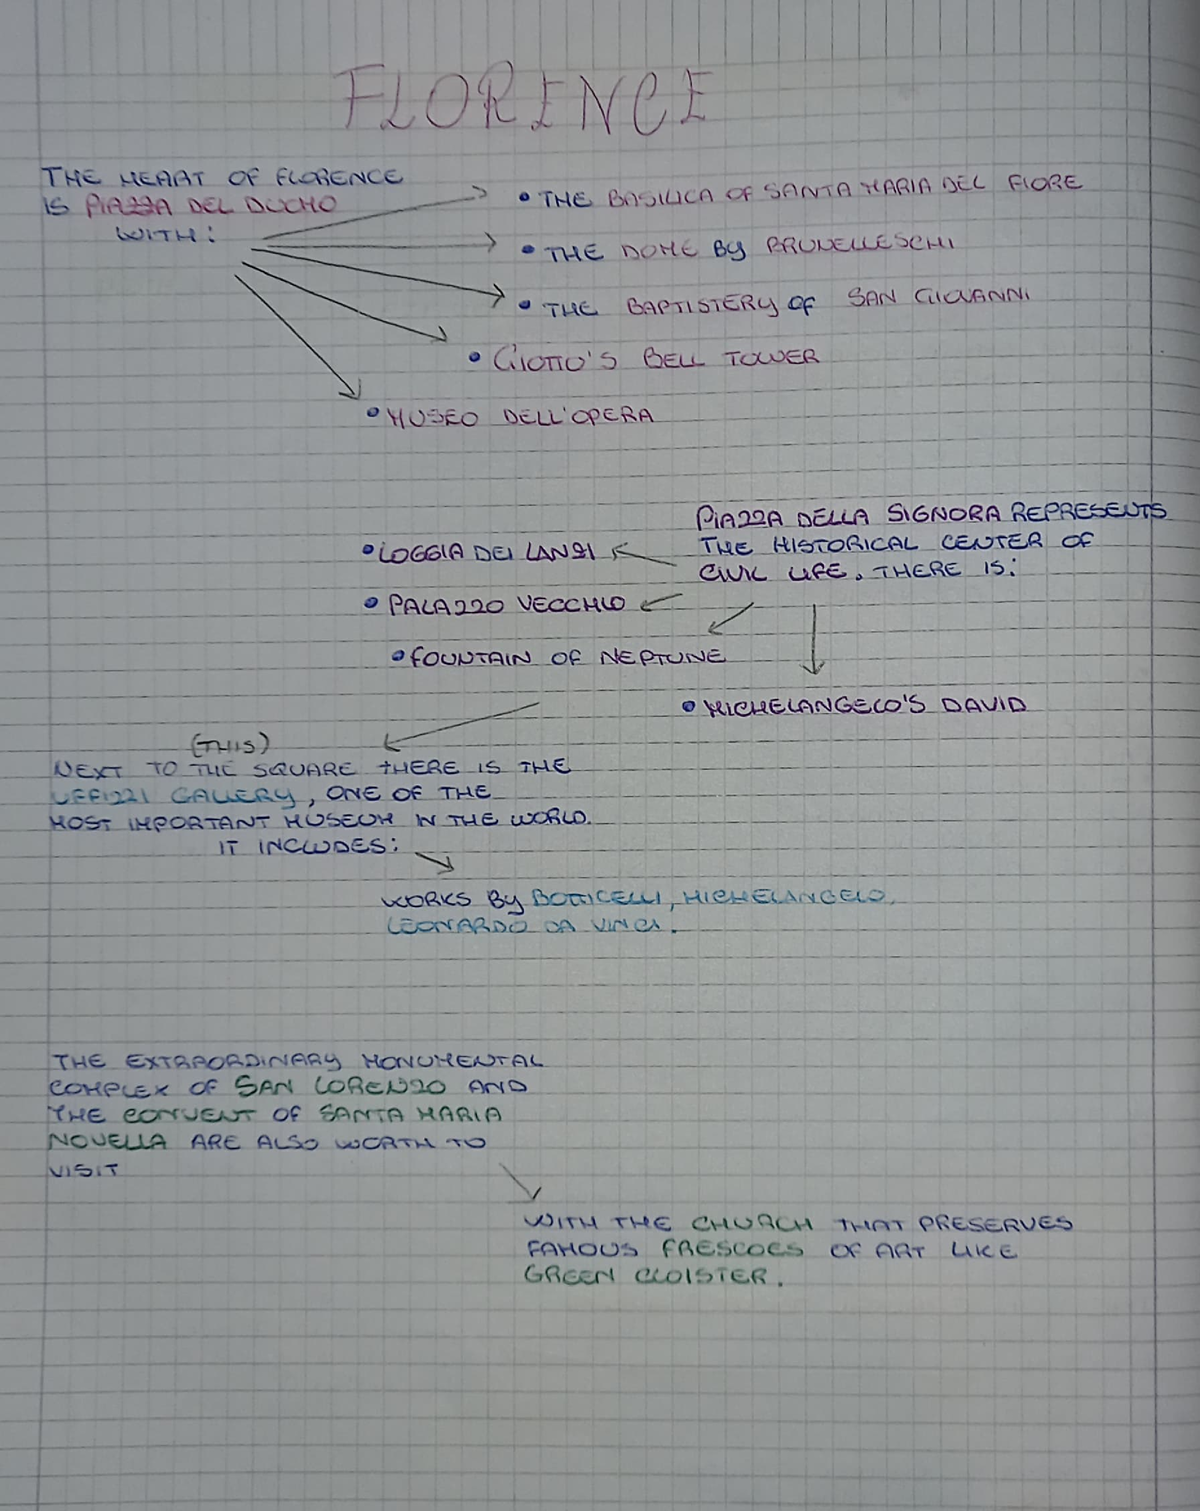 FLORENCE
THE HEART OF FLORENCE
IS PIAZZA DEL DUOMO
WITH:
• THE BASILICA OF SANTA MARIA DEL FIORE
• THE DOME BY BRUNELLESCHI
• THE BAPTISTERY OF SAN GIOVANNI
• GIOTTO'S BELL TOWER
• MUSEO DELL'OPERA
PIAZZA DELLA SIGNORA REPRESENTS
THE HISTORICAL CENTER OF
CIVIL LIFE. THERE IS:
• LOGGIA DEI LANZI
• PALAZZO VECCHIO
• FOUNTAIN OF NEPTUNE
• MICHELANGELO'S DAVID
(THIS)
NEXT TO THE SQUARE THERE IS THE
UFFIZZI GALLERY, ONE OF THE
MOST IMPORTANT MUSEUM IN THE WORLD.
IT INCLUDES:
WORKS BY BOTTICELLI, MICHELANGELO,
LEONARDO DA VINCI.
THE EXTRAORDINARY MONUMENTAL
COMPLEX OF SAN LORENZO AND
THE CONVENT OF SANTA MARIA
NOVELLA ARE ALSO WORTH TO
VISIT
WITH THE CHURCH THAT PRESERVES
FAMOUS FRESCOES OF ART LIKE
GREEN CLOISTER.